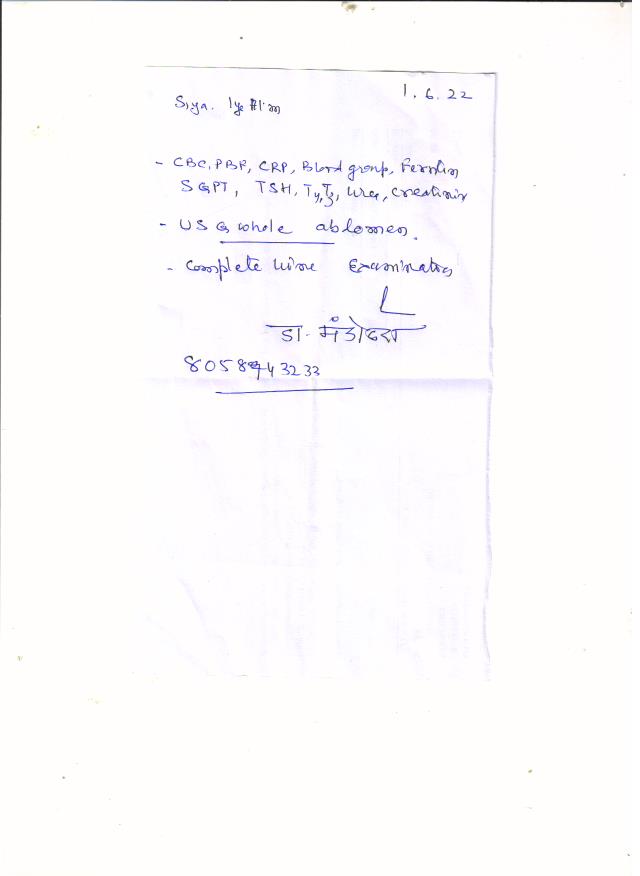 1.6.22
Siya. 1ye
- CBC, PBF, CRP, Blood group, Ferritin
SGPT, TSH, T4, T3, Urea, Creatinin
- USG whole abdomen.
- Complete Urine Examination
डा. मंडोवरा